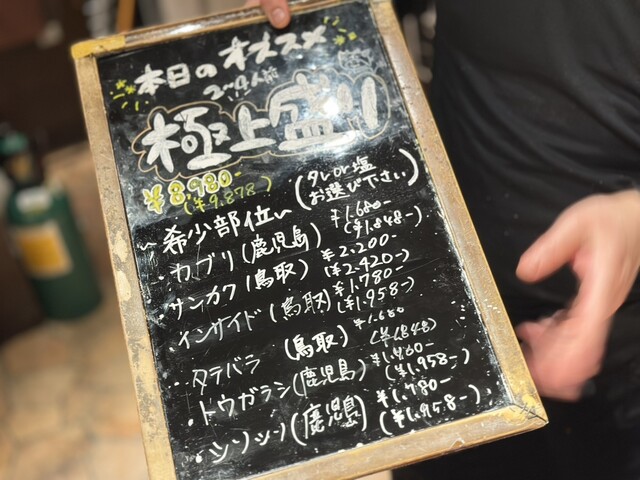 本日のオススメ
2〜4人前
極上盛り
¥8,980-
(¥9,878)
(タレor塩
お選び下さい)
〜希少部位〜
・カブリ(鹿児島) ¥1.680-
(¥1.848-)
・サンカク(鳥取) ¥2.200-
(¥2.420-)
・インサイド(鳥取) ¥1.780-
(¥1.958-)
・タテバラ (鳥取) ¥1.680
(¥1848)
・トウガラシ(鹿児島)
(¥1.958-)
・シンシン(鹿児島) ¥1.780-
(¥1.958-)